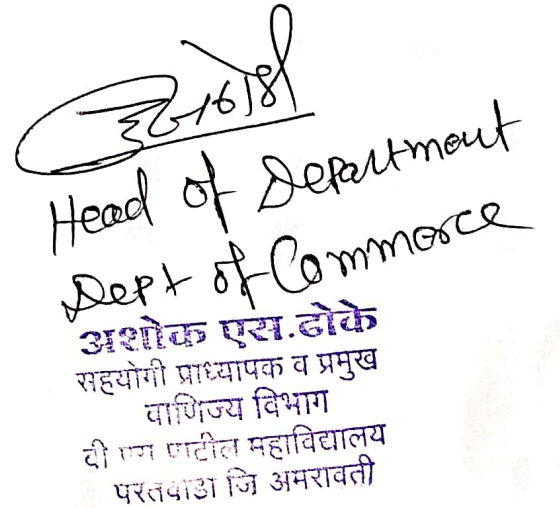 Head of Department
Dept of Commerce
अशोक एस.ढोके
सहयोगी प्राध्यापक व प्रमुख
वाणिज्य विभाग
पाटील महाविद्यालय
परतवाडा जि अमरावती